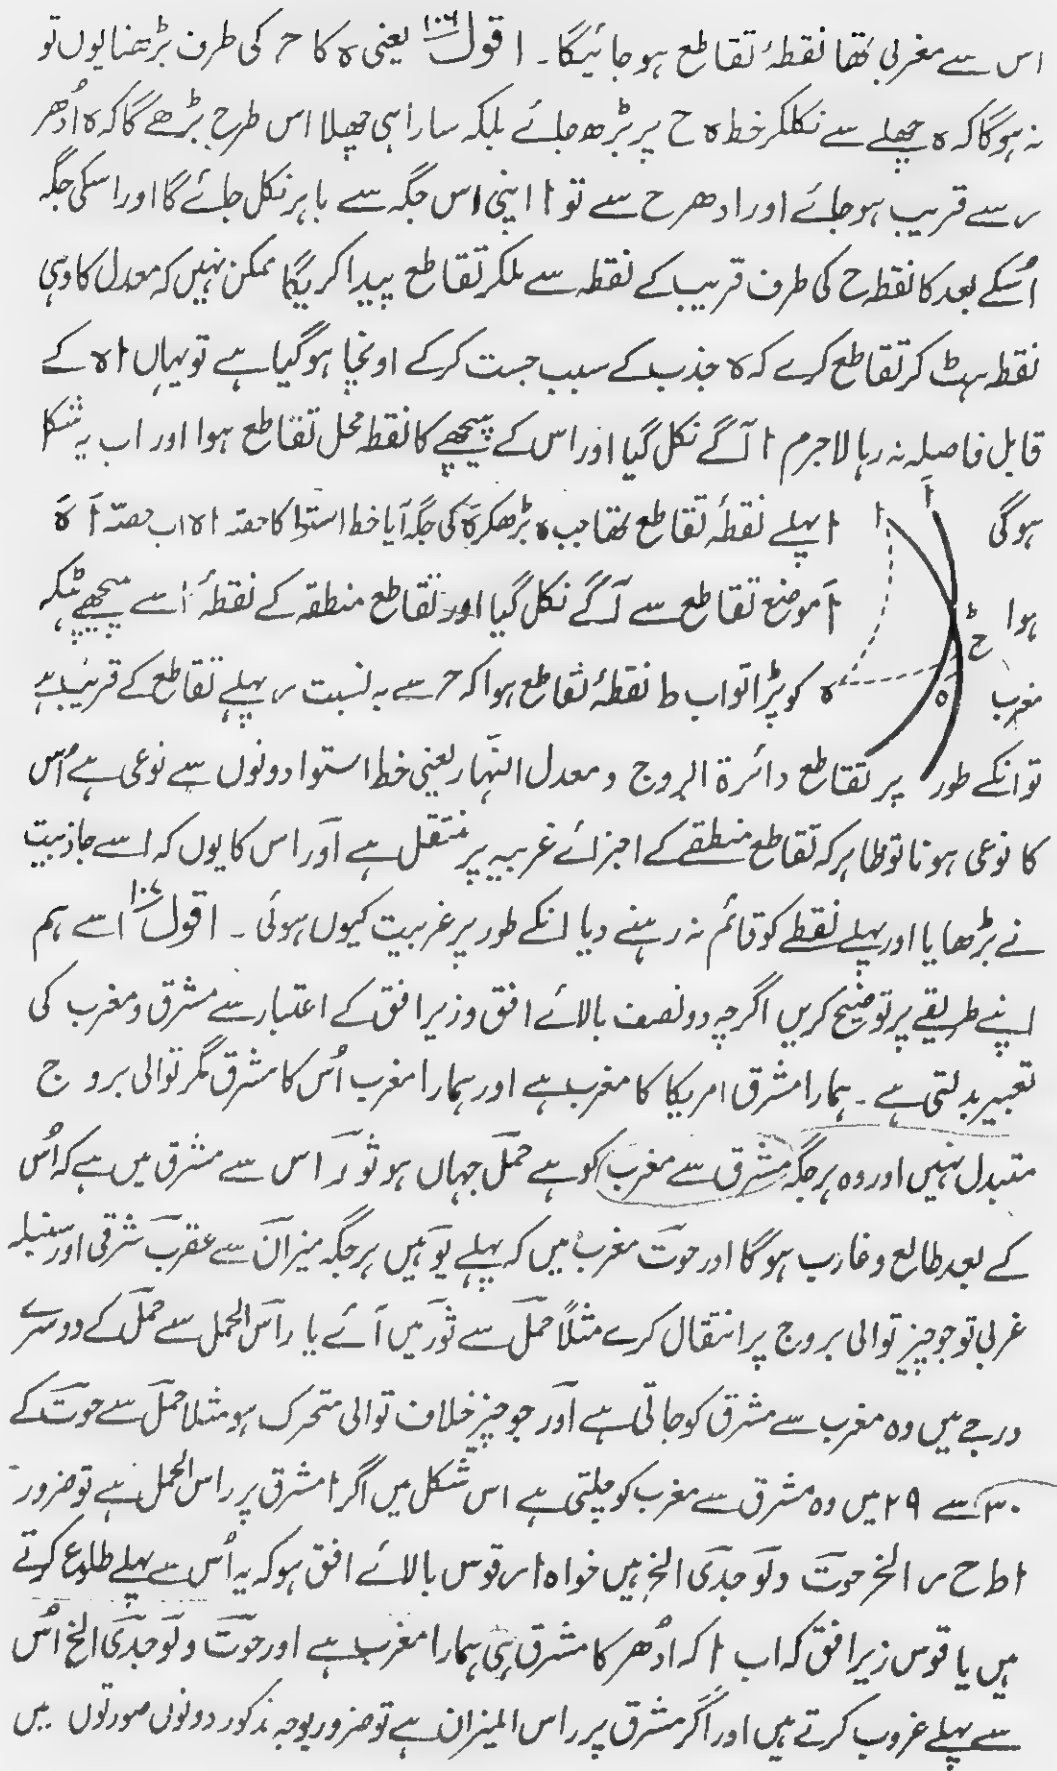 اس سے مغربی تھا نقطۂ تقاطع ہو جائیگا۔ اقول ۱۰۶ یعنی ہ کا ح کی طرف بڑھنا یوں تو
نہ ہوگا کہ ہ چھلے سے نکلکر خط ہ ح پر بڑھ جائے بلکہ سارا ہی چھلا اس طرح بڑھے گا کہ ہ اُدھر
ر سے قریب ہو جائے اور ادھر ح سے تو ا اپنی اس جگہ سے باہر نکل جائے گا اور اسکی جگہ
اُسکے بعد کا نقطہ ح کی طرف قریب کے نقطہ سے ملکر تقاطع پیدا کریگا ممکن نہیں کہ معدل کا وہی
نقطہ ہٹ کر تقاطع کرے کہ ہ جذب کے سبب جست کرکے اونچا ہو گیا ہے تو یہاں ا ہ کے
قابل فاصلہ نہ رہا لاجرم ا آگے نکل گیا اور اس کے پیچھے کا نقطہ محل تقاطع ہوا اور اب یہ شکل
ہوگی ا پہلے نقطۂ تقاطع تھا جب ہ بڑھکر ہَ کی جگہ آیا خط استوا کا حصہ ا ہ اب حصہ اَ ہَ
ہوا اَ موضع تقاطع سے آگے نکل گیا اور تقاطع منطقہ کے نقطۂ ا سے پیچھے ہٹکر
مغرب کو پڑا تو اب ط نقطۂ تقاطع ہوا کہ ح سے بہ نسبت ر پہلے تقاطع کے قریب ہے
تو انکے طور پر تقاطع دائرۃ البروج و معدل النہار یعنی خط استوا دونوں سے نوعی ہے اُس
کا نوعی ہونا تو ظاہر کہ تقاطع منطقے کے اجزائے غربیہ پر منتقل ہے اور اس کا یوں کہ اسے جاذبیت
نے بڑھایا اور پہلے نقطے کو قائم نہ رہنے دیا انکے طور پر غربیت کیوں ہوئی۔ اقول ۱۰۷ اسے ہم
اپنے طریقے پر توضیح کریں اگرچہ دو نصف بالائے افق و زیر افق کے اعتبار سے مشرق و مغرب کی
تعبیر بدلتی ہے۔ ہمارا مشرق امریکا کا مغرب ہے اور ہمارا مغرب اُس کا مشرق مگر توالی بروج
متبدل نہیں اور وہ ہر جگہ مشرق سے مغرب کو ہے حمل جہاں ہو ثور اس سے مشرق میں ہے کہ اُس
کے بعد طالع و غارب ہوگا اور حوت مغرب میں کہ پہلے یوہیں ہر جگہ میزان سے عقرب شرقی اور سنبلہ
غربی تو جو چیز توالی بروج پر انتقال کرے مثلاً حمل سے ثور میں آئے یا راس الحمل سے حمل کے دوسرے
درجے میں وہ مغرب سے مشرق کو جاتی ہے اور جو چیز خلاف توالی متحرک ہو مثلا حمل سے حوت کے
۳۰ سے ۲۹ میں وہ مشرق سے مغرب کو چلتی ہے اس شکل میں اگر ا مشرق پر راس الحمل ہے تو ضرور
ا ط ح ر الخ حوت دلو جدی الخ ہیں خواہ ا ر قوس بالائے افق ہو کہ یہ اُس سے پہلے طلوع کرتے
ہیں یا قوس زیر افق کہ اب ا کہ اُدھر کا مشرق ہی ہمارا مغرب ہے اور حوت دلو جدی الخ اُس
سے پہلے غروب کرتے ہیں اور اگر مشرق پر راس المیزان ہے تو ضرور بوجہ مذکور دونوں صورتوں میں
اَ
ا
ط
ح
ہ
ہَ